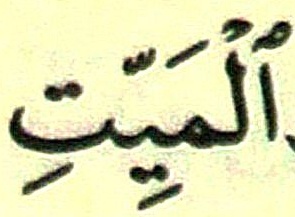 ٱلْمَيِّتِ